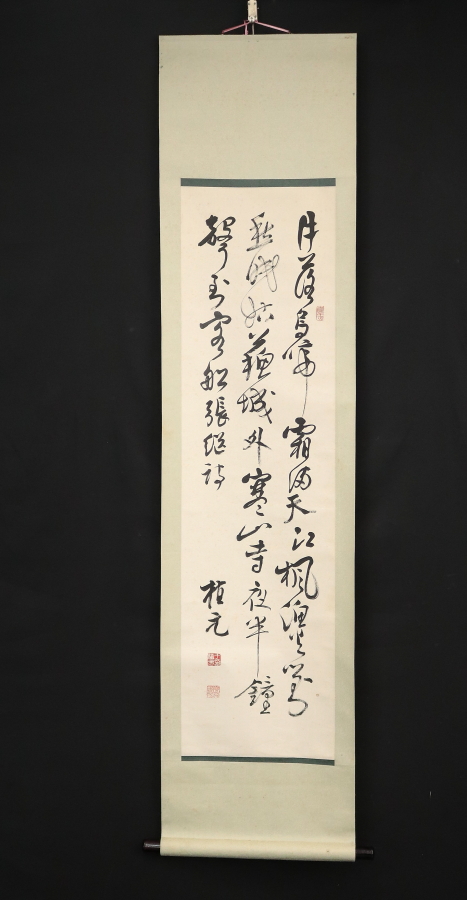 月落烏啼霜満天江楓漁火對
愁眠姑蘇城外寒山寺夜半鐘
聲到客船張継詩